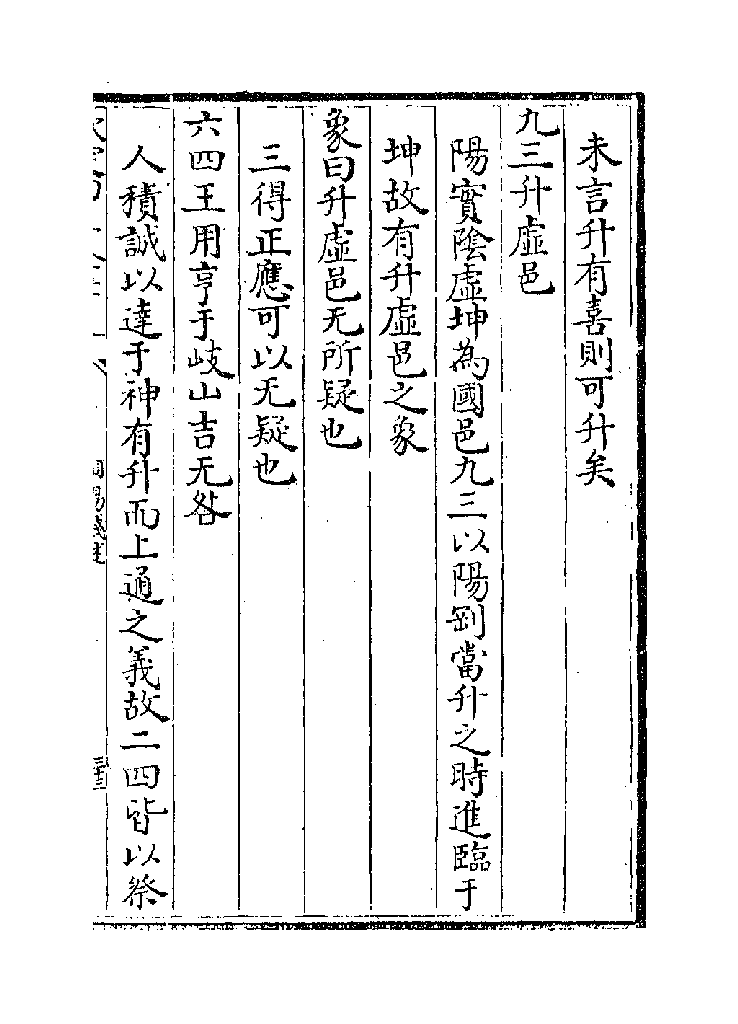 未言升有喜則可升矣
九三升虛邑
陽實陰虛坤為國邑九三以陽剛當升之時進臨于
坤故有升虛邑之象
象曰升虛邑无所疑也
三得正應可以无疑也
六四王用亨于岐山吉无咎
人積誠以達于神有升而上通之義故二四皆以祭